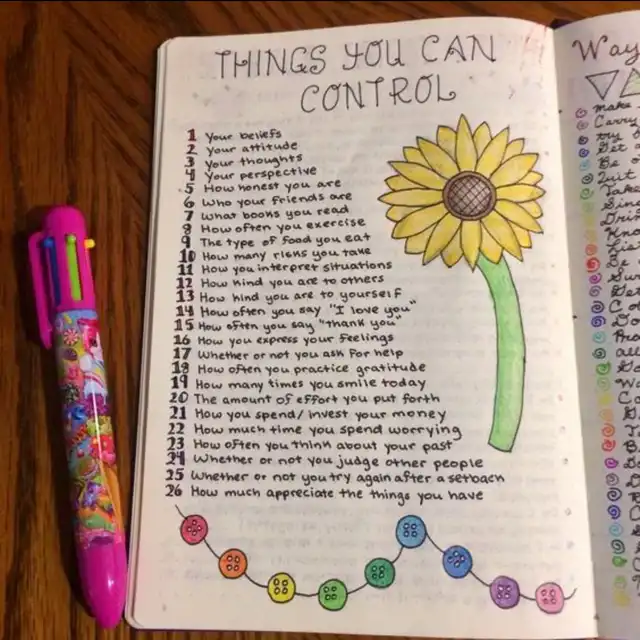 THINGS YOU CAN
CONTROL
1 Your beliefs
2 Your attitude
3 Your thoughts
4 Your perspective
5 How honest you are
6 Who your friends are
7 What books you read
8 How often you exercise
9 The type of food you eat
10 How many risks you take
11 How you interpret situations
12 How kind you are to others
13 How kind you are to yourself
14 How often you say "I love you"
15 How often you say "thank you"
16 How you express your feelings
17 Whether or not you ask for help
18 How often you practice gratitude
19 How many times you smile today
20 The amount of effort you put forth
21 How you spend/invest your money
22 How much time you spend worrying
23 How often you think about your past
24 Whether or not you judge other people
25 Whether or not you try again after a setback
26 How much appreciate the things you have
Way
make
Carry
try
Get
Be
Quit